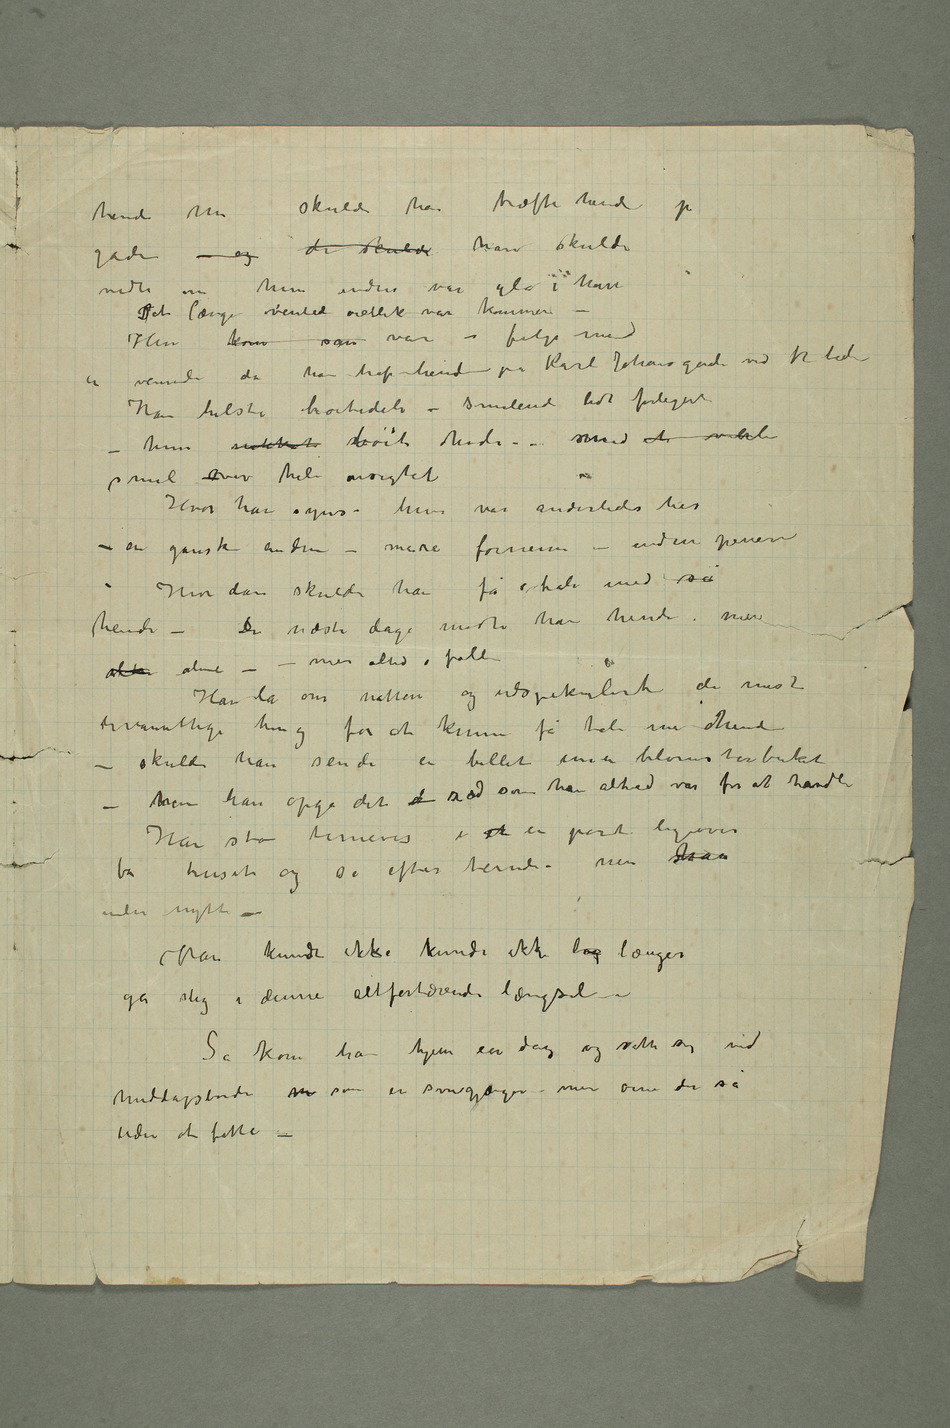 hende nu skulde han træffe hende p
gaden — og de skulde han skulde
vedte om hun endnu var gla i ham
Det længe ventede øieblik var kommen —
Hun kom som var i følge med
en veninde da han traf hende på Karl Johansgade ved tiden
Han hilste ærbødelig – smilende lidt forlegen
– hun nikket bøide hode – – med et
smil over hele ansigtet
Hvor han synes – hun var anderledes her
– en ganske anden – mere fornem – endnu penere
Hvordan skulde han få tale med så
hende – De næste dage mødte han hende. men
alene – – men altid i følge
Han lå om natten og udspekulerte de mest
ting for at kunne få tale med hende
– skulde han sende en billet i en blomsterbuket
– men han opga det ræd som han altid var for at handle
Han sto timevis i et en port ligeover
for huset og så efter hende – men
uden nytte –
Han kunde ikke kunde ikke læng længer
gå slig i denne altfortærende længsel –
Så kom han hjem en dag og satte sig ved
middagsbordet som en søvngjænger – med øine der så
uden at fatte –